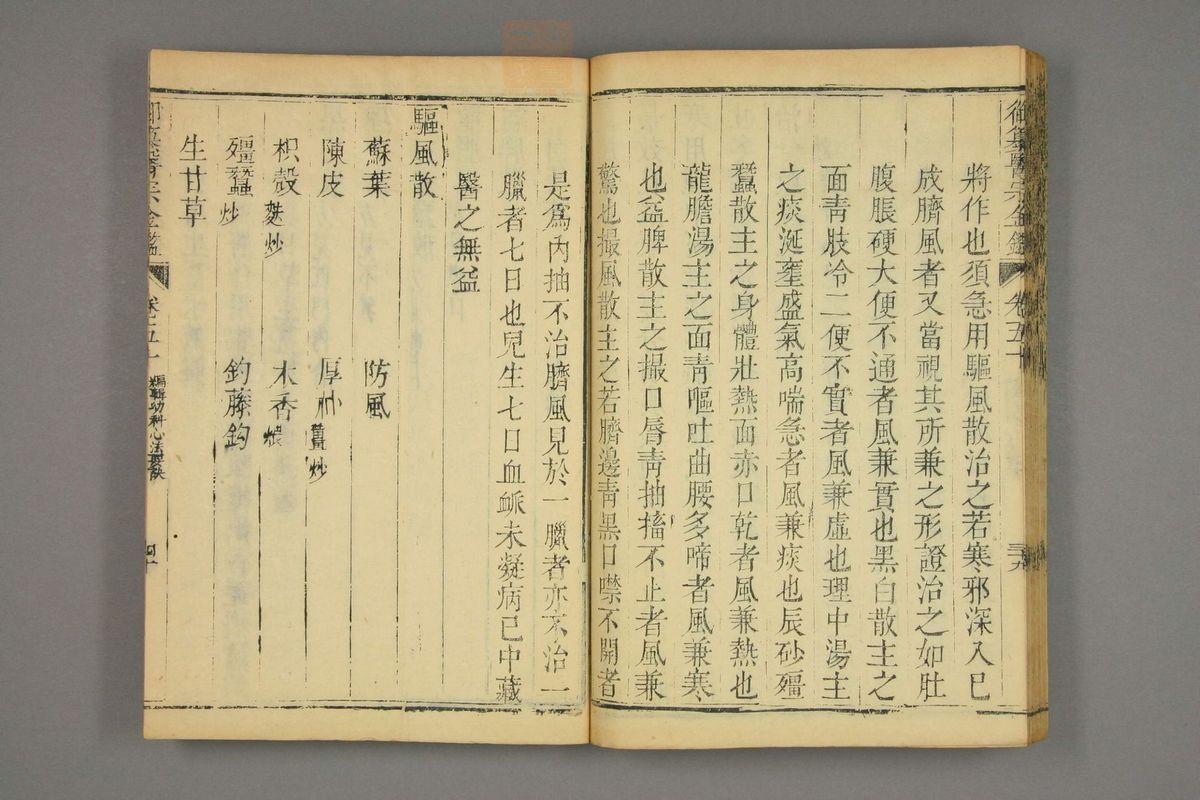 御纂醫宗金鑑 卷五十
將作也須急用驅風散治之若寒邪深入已
成臍風者又當視其所兼之形證治之如肚
腹脹硬大便不通者風兼實也黑白散主之
面青肢冷二便不實者風兼虛也理中湯主
之痰涎壅盛氣高喘急者風兼痰也辰砂殭
蠶散主之身體壯熱面赤口乾者風兼熱也
龍膽湯主之面青嘔吐曲腰多啼者風兼寒
也益脾散主之撮口脣青抽搐不止者風兼
驚也撮風散主之若臍邊青黑口噤不開者
是爲內抽不治臍風見於一臘者亦不治一
臘者七日也兒生七日血脈未凝病已中藏
醫之無益
驅風散
蘇葉 防風
陳皮 厚朴 薑炒
枳殼 麩炒 木香 煨
殭蠶 炒 鈎藤鈎
生甘草
御纂醫宗金鑑 卷五十 編輯幼科心法要訣